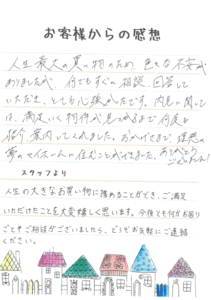 お客様からの感想
人生最大の買い物のため、色々な不安が
ありましたが、何でもすぐに相談、回答して
いただき、とても心強かったです。内見に関して
は、満足いく物件が見つかるまで何度も
案内してくれました。おかげさまで理想の
夢のマイホームに住むことができました。ありがとう
ございました!
スタッフより
人生の大きなお買い物に携めることができ、ご満足
いただけたことを大変嬉しく思います。今後とも何かお困り
ごとやご相談がございましたら、どうぞお気軽にご連絡
ください。